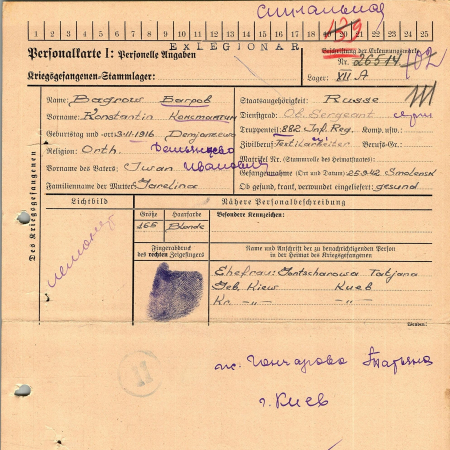 1 2 3 4 5 6 7 8 9 10 11 12 13 14 15 16 17 18 19 20 21 22 23 24 25
EXLEGIONÄR
Personalkarte I: Personelle Angaben
Beschriftung der Erkennungsmarke
Nr. 26514
Kriegsgefangenen-Stammlager:
Lager: VII A
Des Kriegsgefangenen
Name: Bagrow Багров
Staatsangehörigkeit: Russe
Vorname: Konstantin Константин
Dienstgrad: Ob. Sergeant
Geburtstag und -ort: 3.II.1916
Truppenteil: 882 Inf. Reg. Komp. usw.:
Religion: Orth.
Zivilberuf: Textilarbeiter Berufs-Gr.:
Matrikel Nr. (Stammrolle des Heimatstaates):
Vorname des Vaters: Iwan Иванович
Gefangennahme (Ort und Datum): 25.9.42 Smolensk
Familienname der Mutter: Jarelina
Ob gesund, krank, verwundet eingeliefert: gesund
Lichtbild
Nähere Personalbeschreibung
Größe
Haarfarbe
Besondere Kennzeichen:
165
Blonde
Fingerabdruck
des rechten Zeigefingers
Name und Anschrift der zu benachrichtigenden Person
in der Heimat des Kriegsgefangenen
Ehefrau: Gontscharowa Tatjana
Geb. Kiew Киев
Kr. -"- -"-
Гончарова Татьяна
г. Киев
11